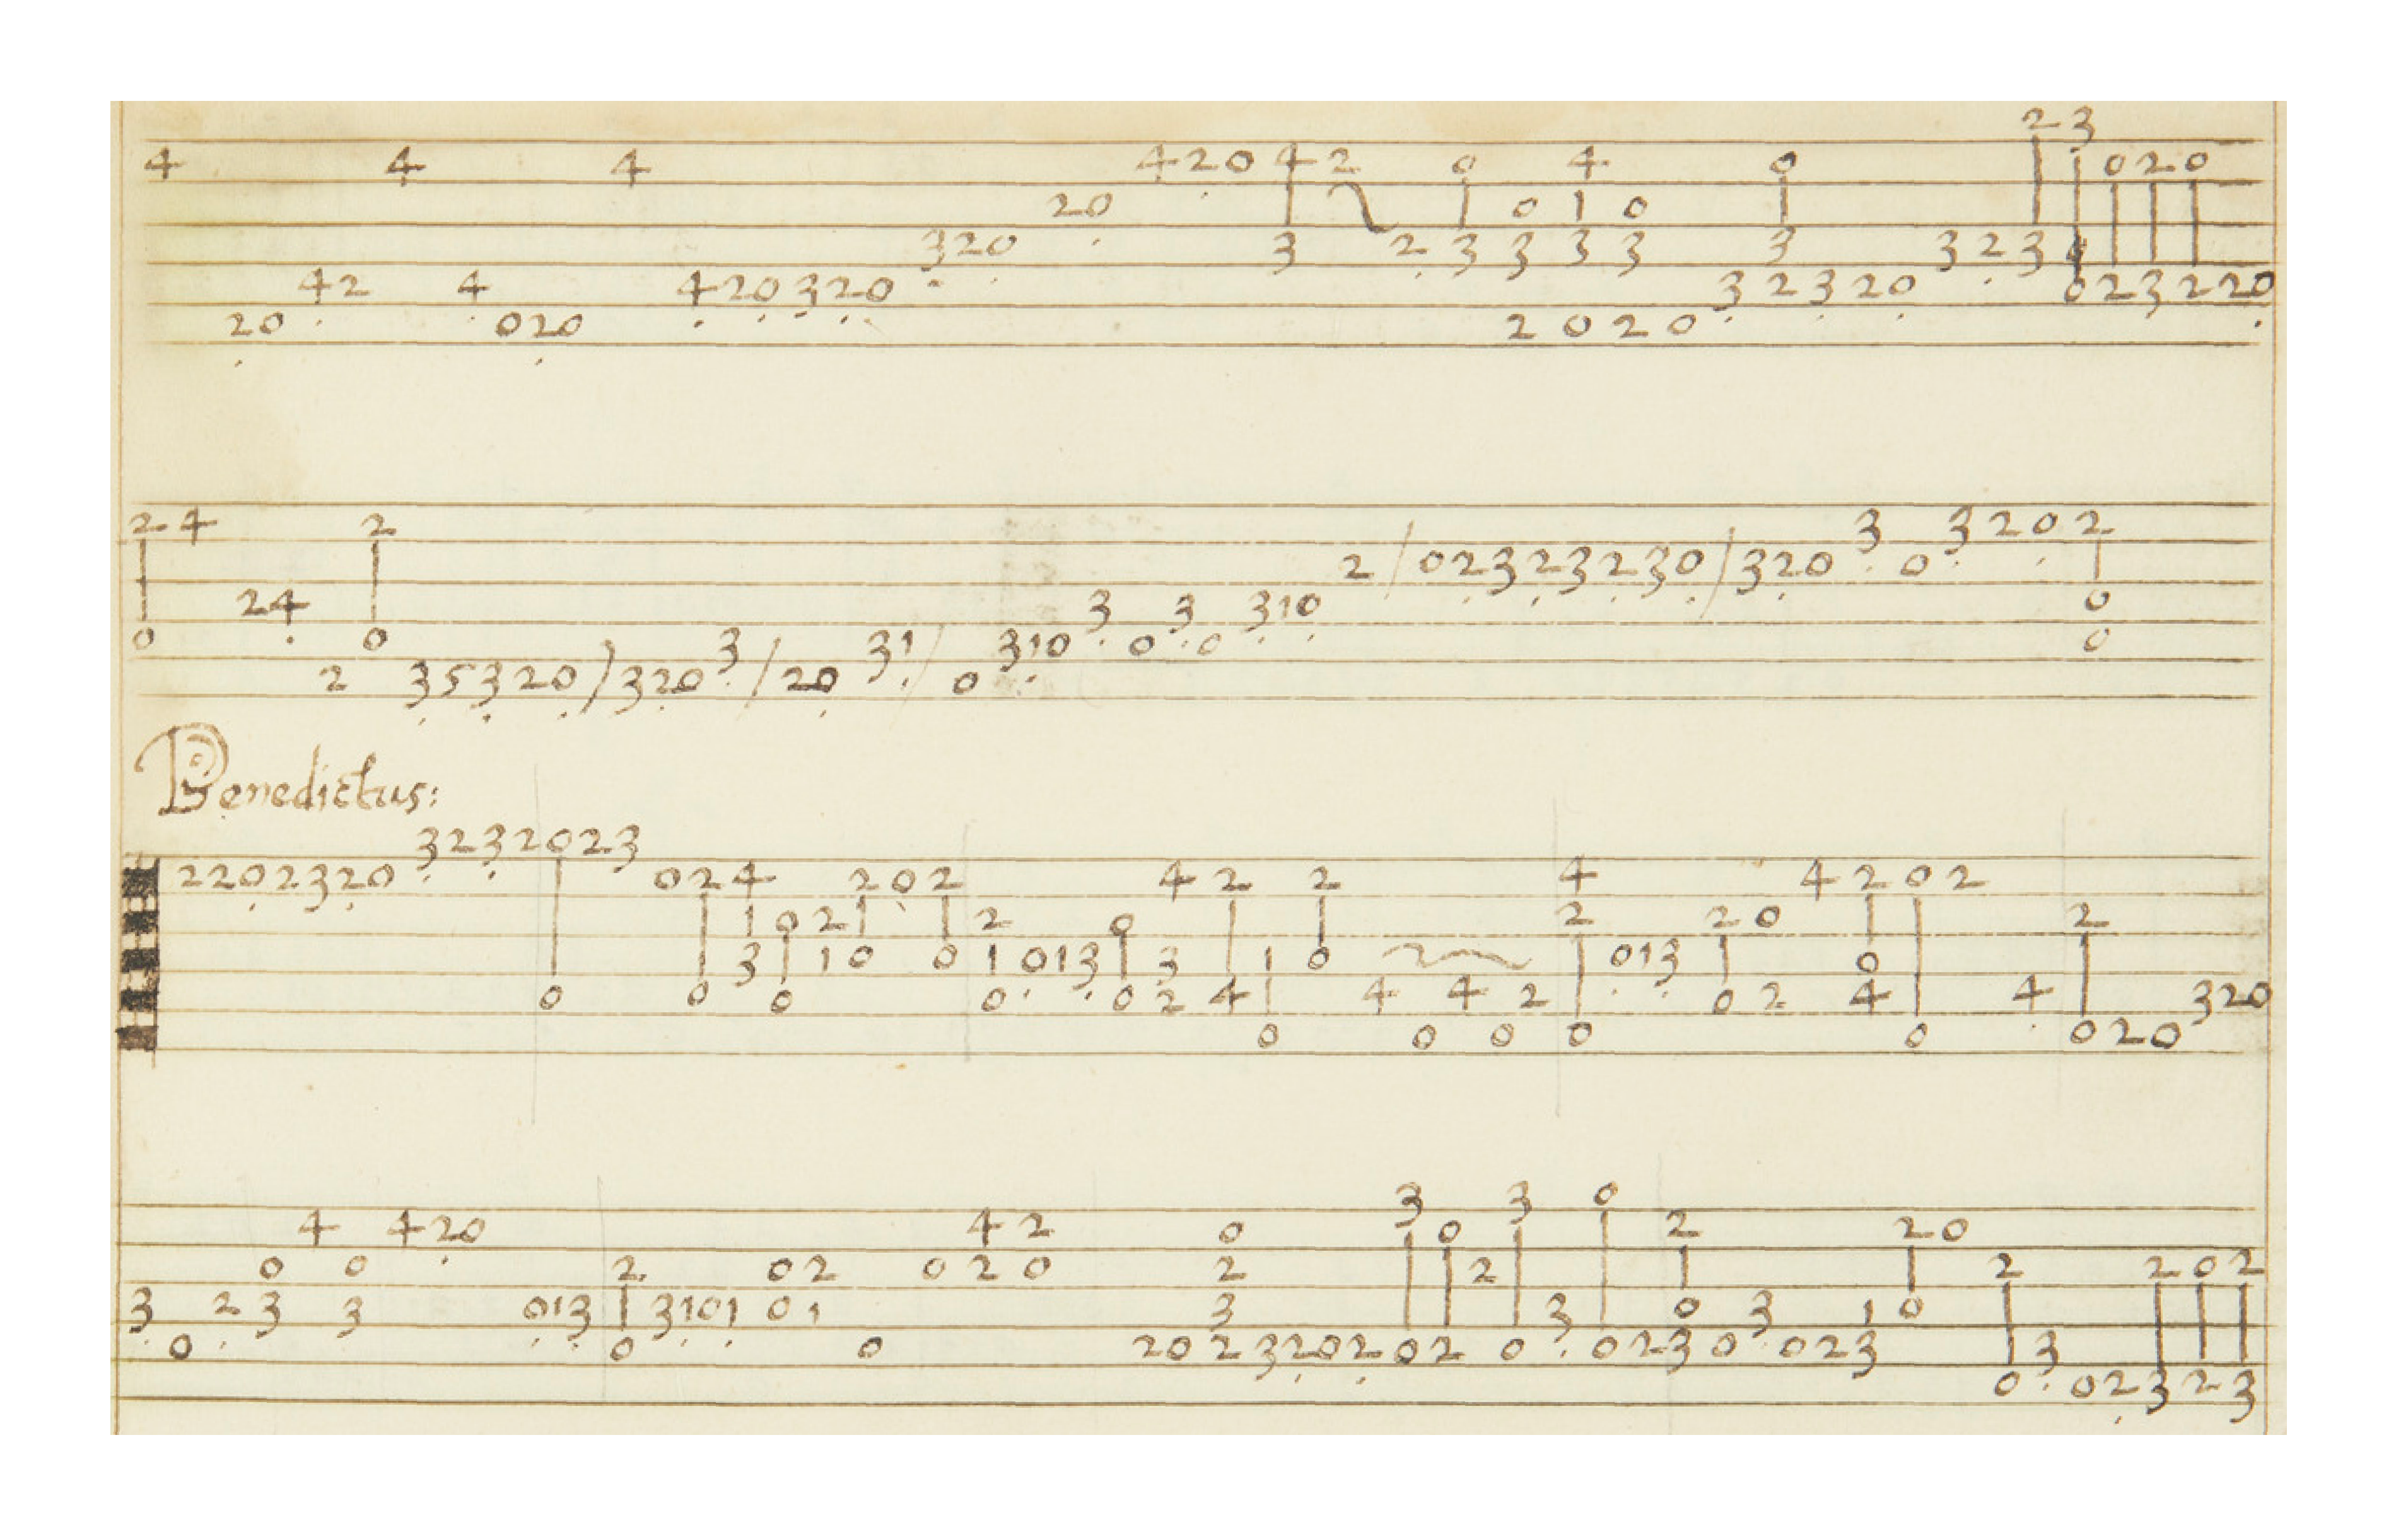 2 3
4 4 4 4 2 0 4 2 0 4 0 0 2 0
2 0 0 1 0
3 2 0 3 2 3 3 3 3 3 3 2 3
4 2 4 4 2 0 3 2 0 3 2 3 2 0 0 2 3 2 2 0
2 0 0 2 0 2 0 2 0
2 4 2 3 3 2 0 2
2 / 0 2 3 2 3 2 3 0 / 3 2 0 0
2 4 3 3 3 1 0 0
0 0 3 3 1 3 1 0 0 0 0
2 3 5 3 2 0 / 3 2 0 / 2 0 / 0
Benedictus:
3 2 3 2 0 2 3
2 2 0 2 3 2 0 0 2 4 2 0 2 4 2 2 4 4 2 0 2
0 2 2 0 2 2 0 2
3 1 0 0 1 0 1 3 3 1 0 0 1 3 0
0 0 0 0 0 2 4 4 4 2 0 2 4 4 3 2 0
0 0 0 0 0 0 2 0
3 3 0
4 4 2 0 4 2 0 0 2 2 0
0 0 2 0 2 0 2 0 2 2 2 2 0 2
3 2 3 3 0 1 3 1 3 1 0 1 0 1 3 3 0 3 1 0
0 0 0 2 0 2 3 2 0 2 0 2 0 0 2 3 0 0 2 3 3
0 0 2 3 2 3